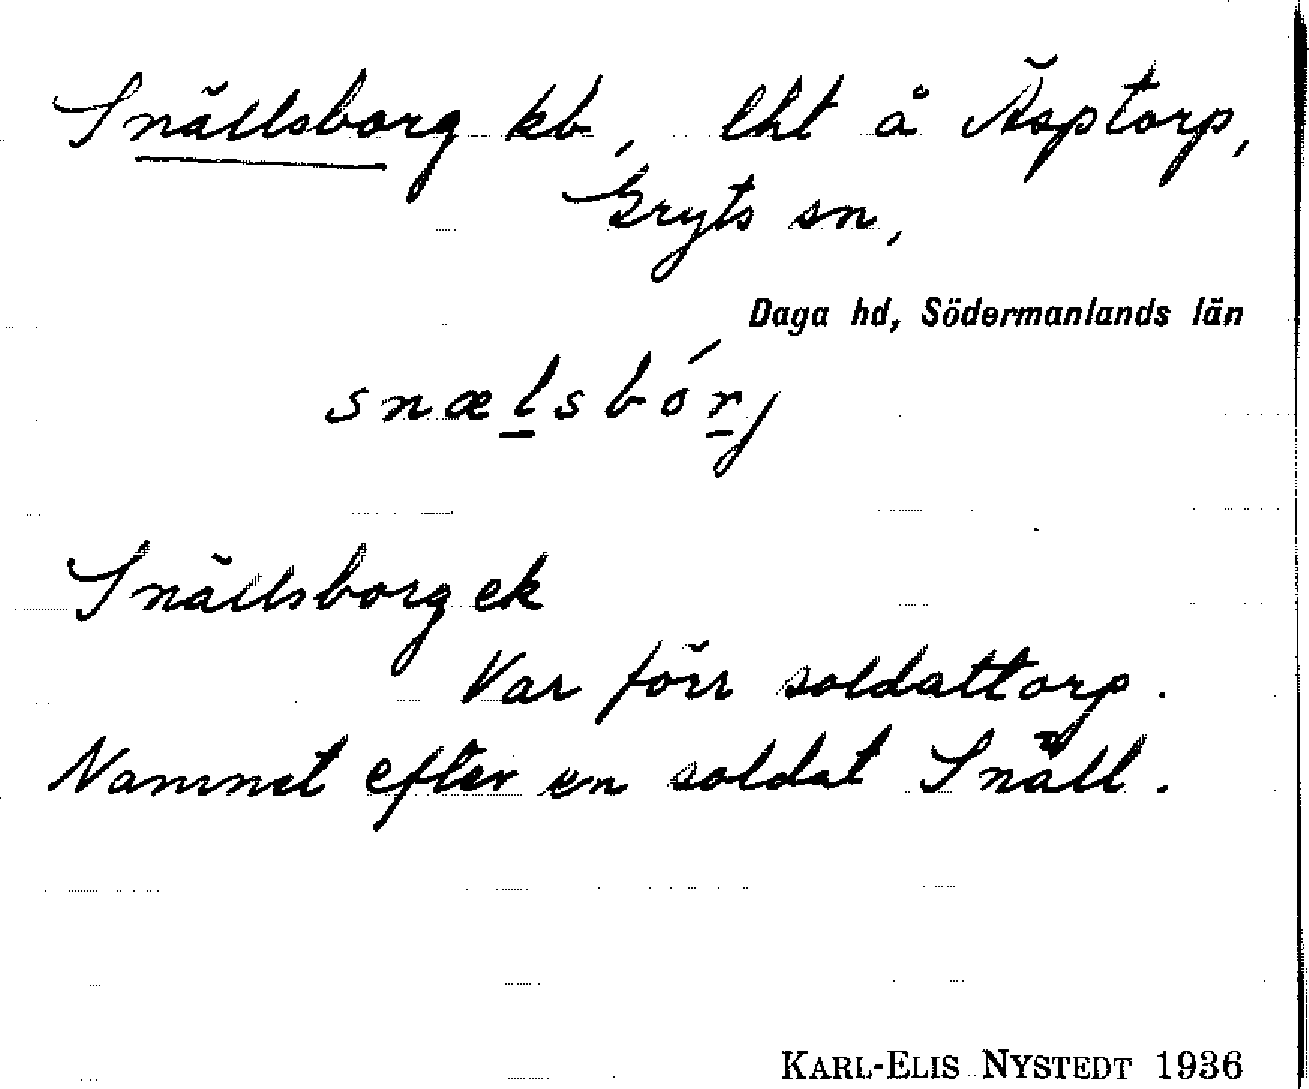 Snällsborg kb, lht å Äsptorp,
Gryts sn,
Daga hd, Södermanlands län
snælsbórj
Snällsborg ek
Var förr soldattorp.
Namnet efter en soldat Snäll.
KARL-ELIS NYSTEDT 1936